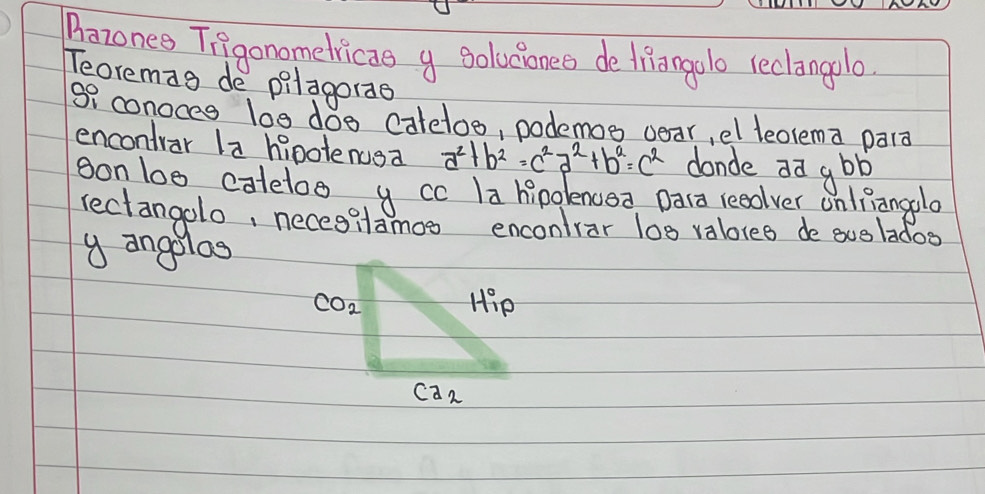 Razones Trigonometricas y soluciones de triangulo rectangulo.
Teoremas de pitagoras
Si conoces los dos catetos, podemos usar, el teorema para
encontrar la hipotenusa a²+b²=c² a²+b²=c² donde aa y bb
son los catetos y cc la hipotenusa para resolver un triangulo
rectangulo, necesitamos encontrar los valores de sus lados
y angulos
CO₂ Hip
Ca₂